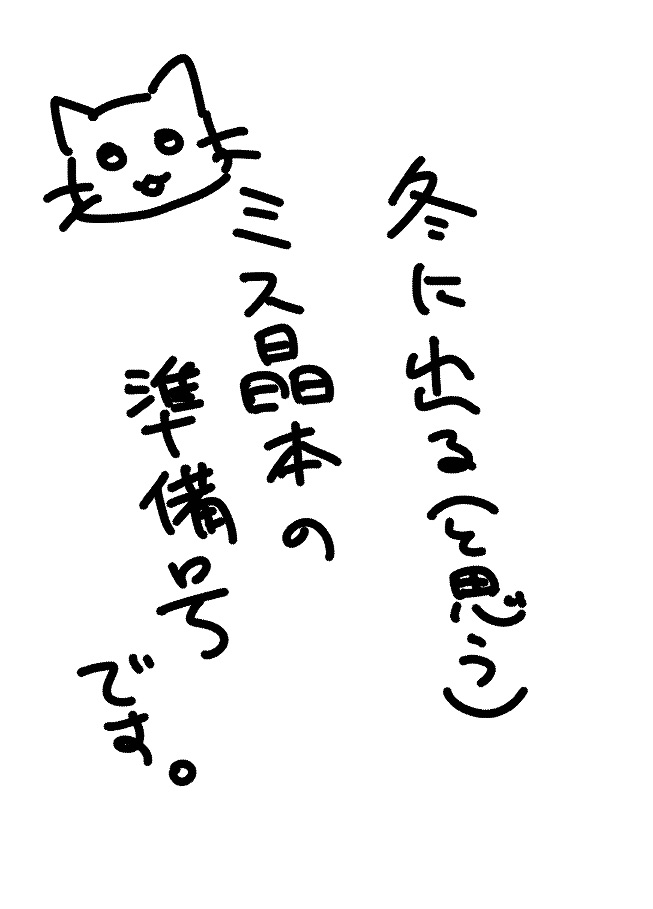 冬に出る(と思う)
ミス晶本の
準備号
です。